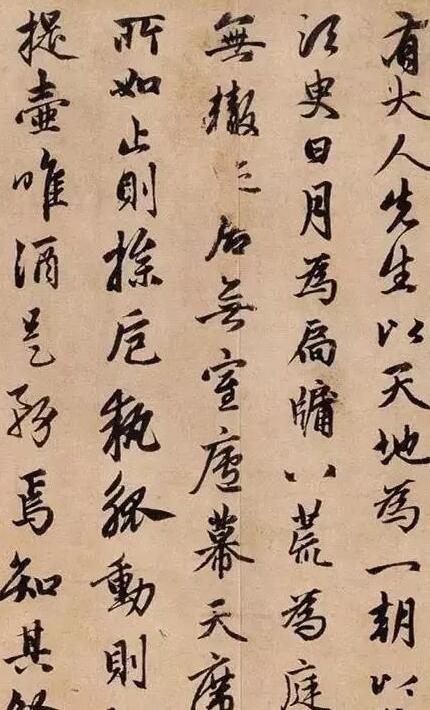 有大人先生以天地為一朝以
須臾日月為扃牖八荒為庭
無轍迹居無室廬幕天席
所如止則操卮執觚動則
提壺唯酒是務焉知其餘